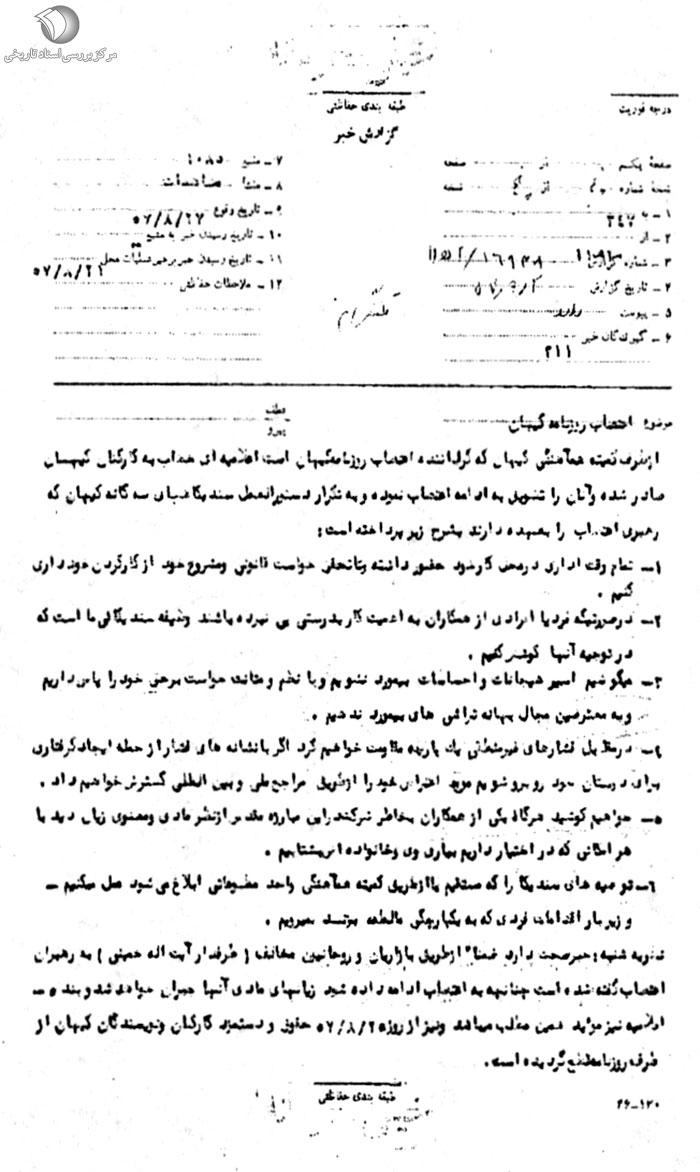 مرکز بررسی اسناد تاریخی
طبقه بندی حفاظتی
گزارش خبر
درجه فوریت
صفحه یکم از صفحه
نسخه شماره از نسخه
۱ – به ۳۴۷
۲ – از
۳ – شماره گزارش
۴ – تاریخ گزارش
۵ – پیوست
۶ – گیرندگان خبر ۲۱۱
۷ – منبع ۱۰۸۵
۸ – منشأ مشاهدات
۹ – تاریخ وقوع ۵۷/۸/۲۷
۱۰ – تاریخ رسیدن خبر به منبع
۱۱ – تاریخ رسیدن خبر برهبر عملیات محل ۵۷/۸/۲۲
۱۲ – ملاحظات حفاظتی
تلگرام
موضوع اعتصاب روزنامه کیهان
عطف
پیرو
ازطرف کمیته هماهنگی کیهان که گرداننده اعتصاب روزنامه کیهان است اعلامیه ای خطاب به کارکنان کیهان
صادر شده وآنان را تشویق به ادامه اعتصاب نموده و به تکرار دستورالعمل سندیکاهای سه گانه کیهان که
رهبری اعتصاب را بعهده دارند بشرح زیر پرداخته است :
۱– تمام وقت اداری درمحل کارخود حضور داشته وتا تحقق خواست قانونی ومشروع خود از کارکردن خود داری
کنیم .
۲– درصورتیکه فرد یا افرادی از همکاران به اهمیت کار بدرستی پی نبرده باشند وظیفه سندیکائی ما است که
در توجیه آنها کوشش کنیم .
۳– میکوشیم اسیر هیجانات و احساسات بیمورد نشویم و با نظم و متانت خواست برحق خود را پاس داریم
و به مغرضین مجال بهانه تراشی های بیمورد ندهیم .
۴– درمقابل فشارهای غیرمنطقی یک پارچه مقاومت خواهیم کرد اگر با نشانه های فشار از جمله ایجاد گرفتاری
برای دوستان خود روبرو شویم موید اعتراض خود را ازطریق مراجع ملی و بین المللی گسترش خواهیم داد .
۵– خواهیم کوشید هرگاه یکی از همکاران بخاطر شرکت دراین مبارزه مقدس ازنظر مادی ومعنوی زیان دید با
هر امکانی که در اختیار داریم بیاری وی وخانواده اش بشتابیم .
۶– توصیه های سندیکا را که مستقیم یا ازطریق کمیته هماهنگی واحد مطبوعاتی ابلاغ می شود عمل میکنیم –
و زیر بار اقدامات فردی که به یکپارچگی مالطمه بزند نمیرویم .
نظریه شنبه : خبر صحت دارد ضمنا" ازطریق بازاریان و روحانیون مخالف ( طرفدار آیت اله خمینی ) به رهبران
اعتصاب گفته شده است چنانچه به اعتصاب ادامه داده شود زیانهای مادی آنها جبران خواهد شد و بند ۵ –
اعلامیه نیز موید همین مطلب میباشد ونیز از روز ۵۷/۸/۲۵ حقوق و دستمزد کارکنان ونویسندگان کیهان از
طرف روزنامه قطع گردیده است .
طبقه بندی حفاظتی
۲۶–۱۲۰